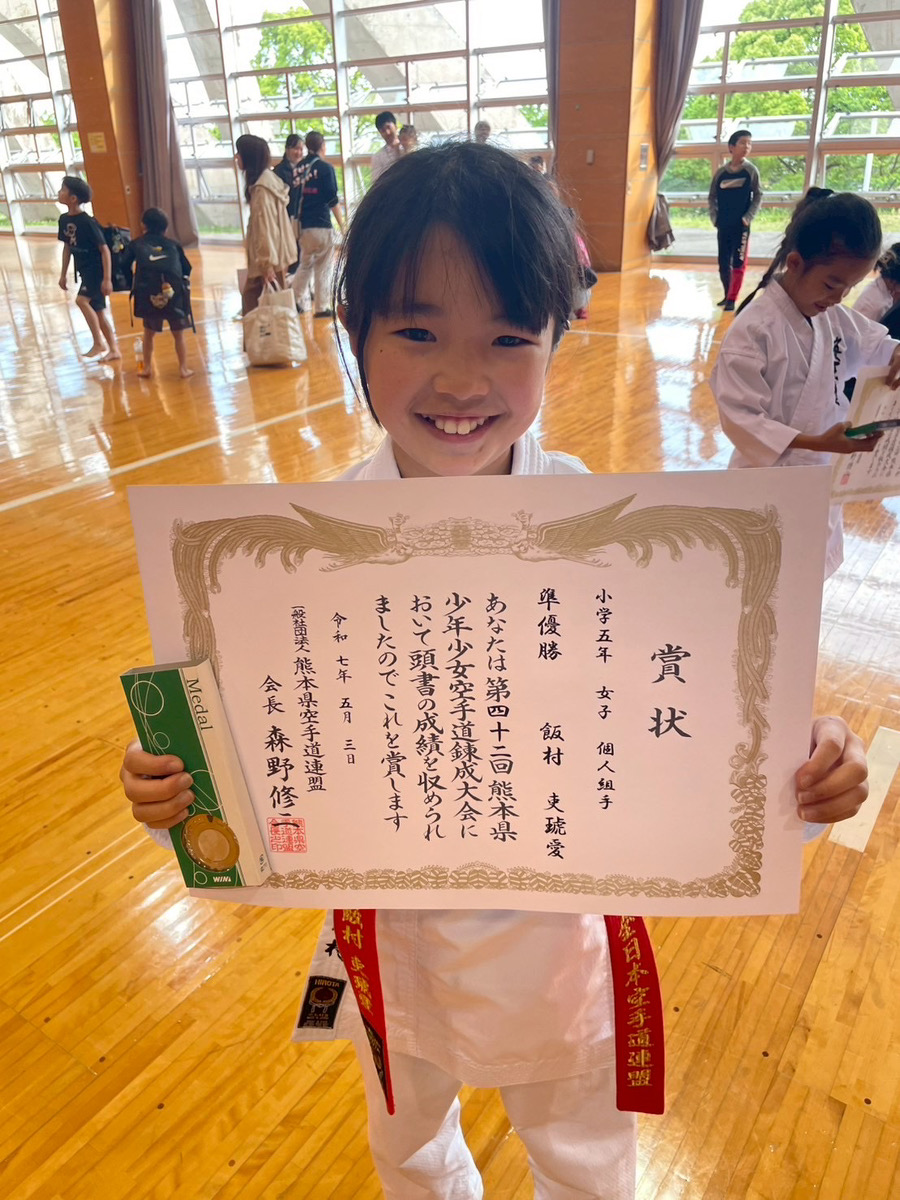 賞状
小学五年 女子 個人組手
準優勝 飯村 吏琥愛
あなたは第四十二回熊本県
少年少女空手道錬成大会に
おいて頭書の成績を収められ
ましたのでこれを賞します
令和七年五月三日
一般社団法人 熊本県空手道連盟
会長 森野修二
Medal
WIN
HIROTA
全日本空手道連盟